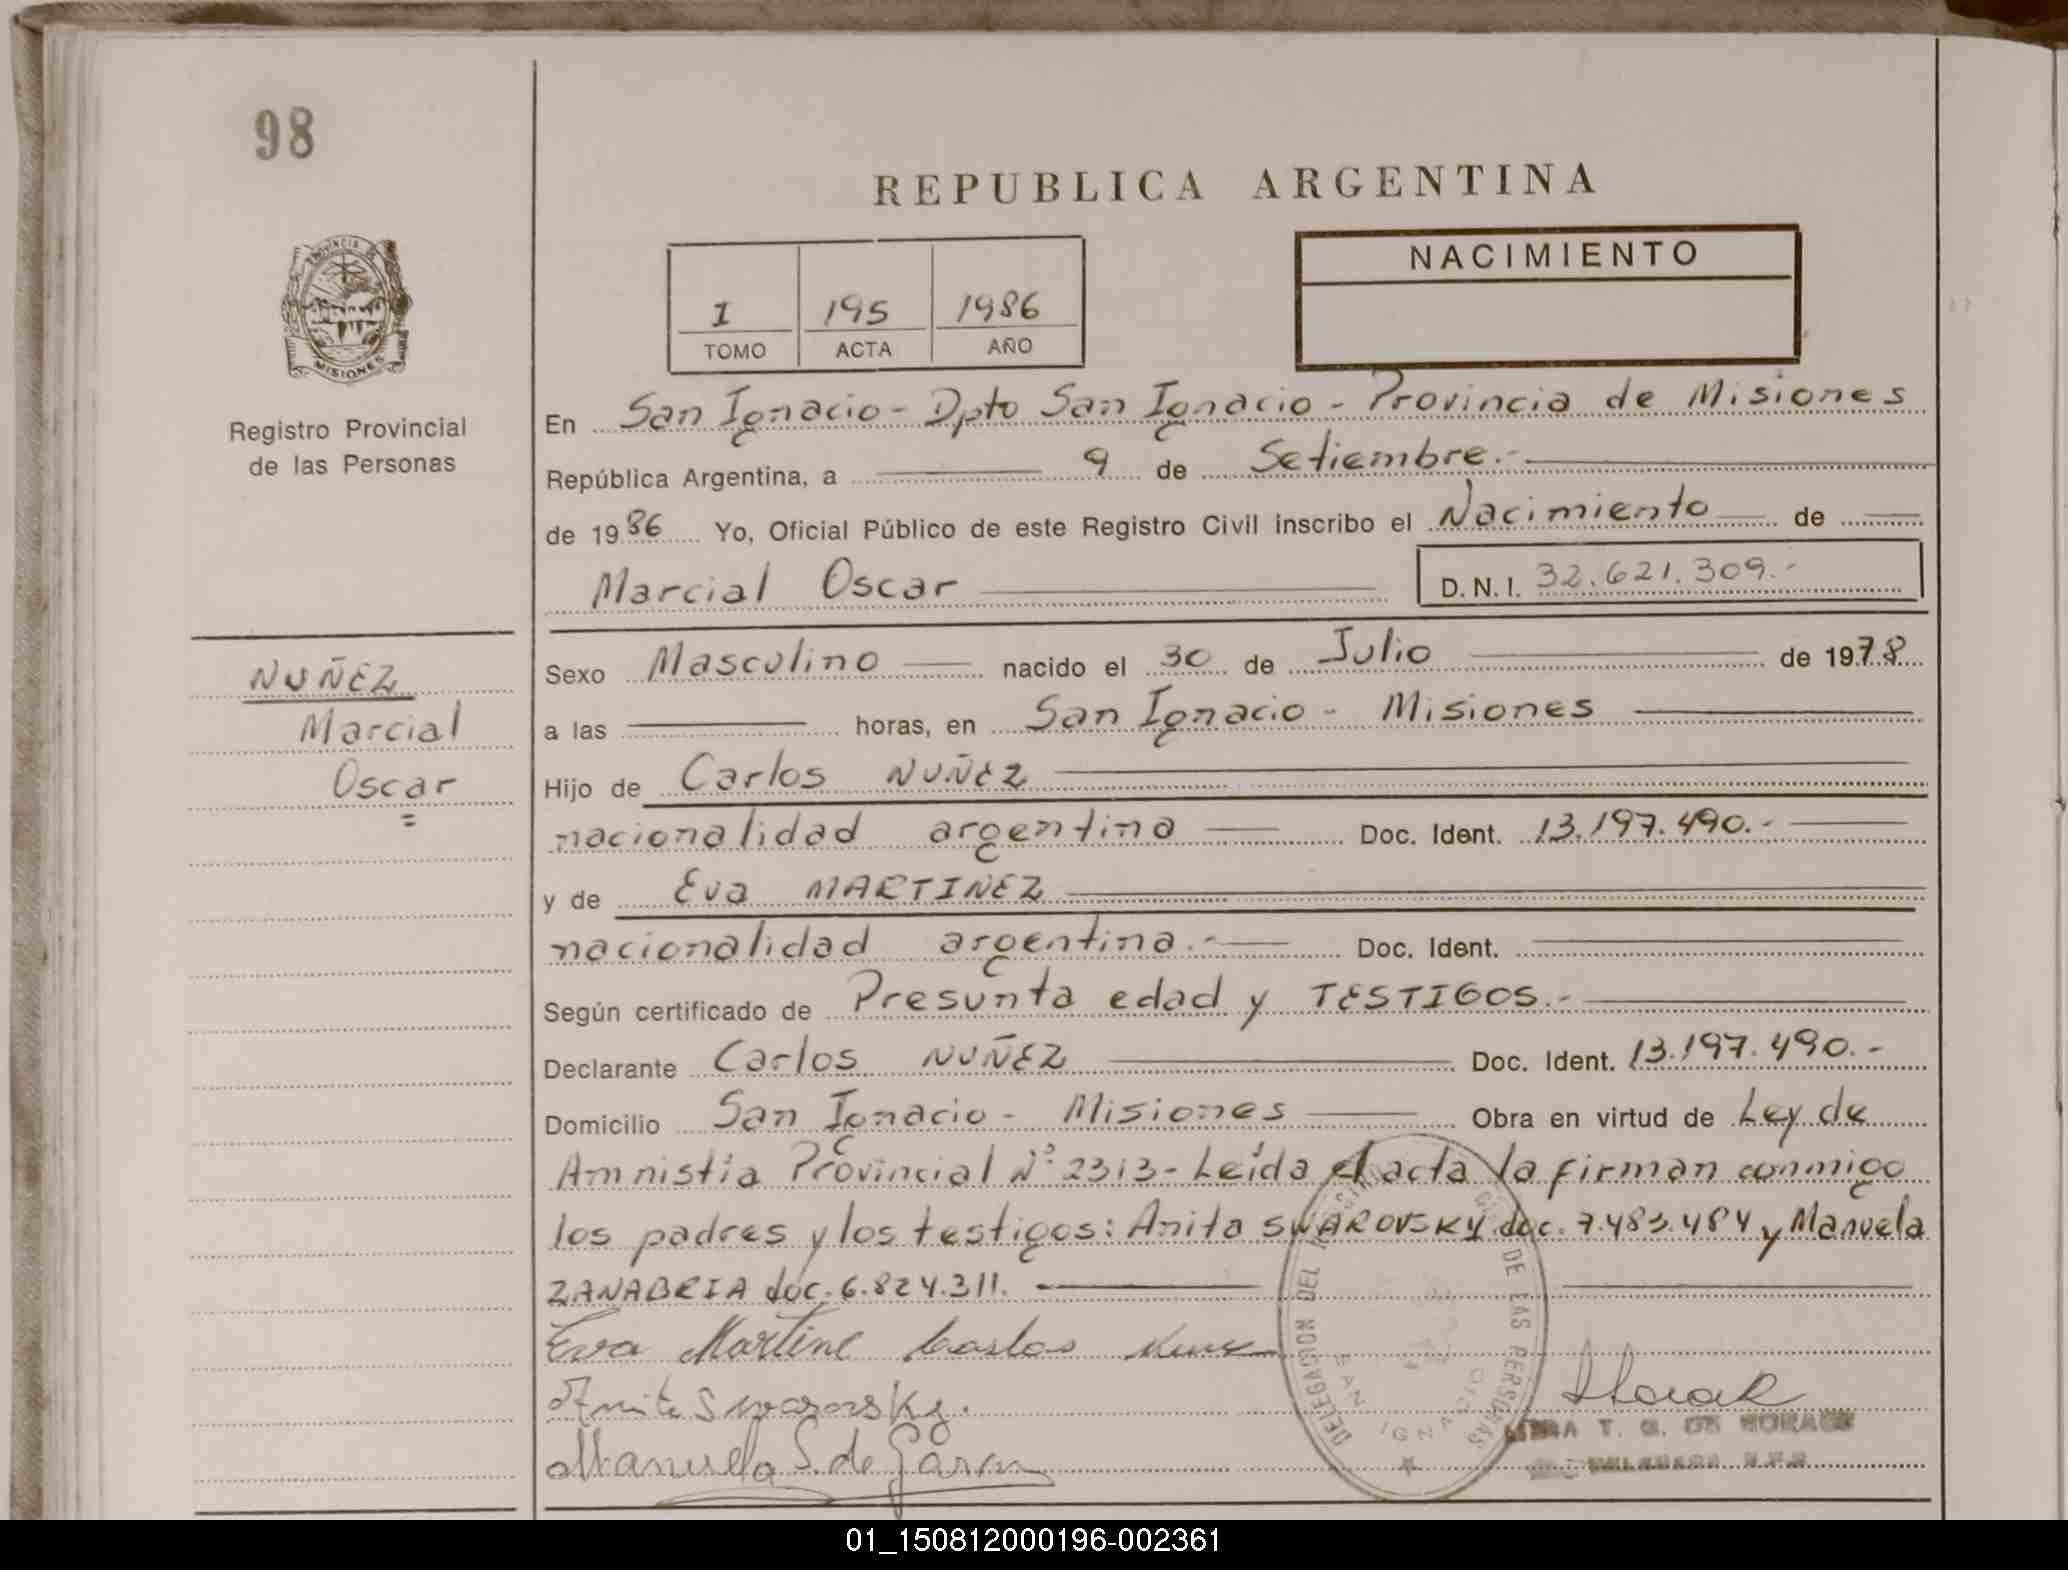 98
REPUBLICA ARGENTINA
NACIMIENTO
I 195 1986
TOMO ACTA AÑO
PROVINCIA DE
MISIONES
Registro Provincial
de las Personas
En San Ignacio - Dpto San Ignacio - Provincia de Misiones
República Argentina, a 9 de Setiembre.-
de 1986 Yo, Oficial Público de este Registro Civil inscribo el Nacimiento de
Marcial Oscar D.N.I. 32.621.309.-
NUÑEZ
Marcial
Oscar
Sexo Masculino nacido el 30 de Julio de 1978
a las horas, en San Ignacio - Misiones
Hijo de Carlos NUÑEZ
nacionalidad argentina Doc. Ident. 13.197.490.-
y de Eva MARTINEZ
nacionalidad argentina.- Doc. Ident.
Según certificado de Presunta edad y TESTIGOS.-
Declarante Carlos NUÑEZ Doc. Ident. 13.197.490.-
Domicilio San Ignacio - Misiones Obra en virtud de Ley de
Amnistia Provincial N° 2313 - Leída el acta la firman conmigo
los padres y los testigos: Anita SWAROVSKY doc. 7.483.484 y Manuela
ZANABRIA doc. 6.824.311.
Eva Martine Carlos
Anita Swarovsky.
Manuela S. de
DELEGACION DEL REGISTRO DE LAS PERSONAS
SAN IGNACIO
T. G. DE MORAES
01_150812000196-002361